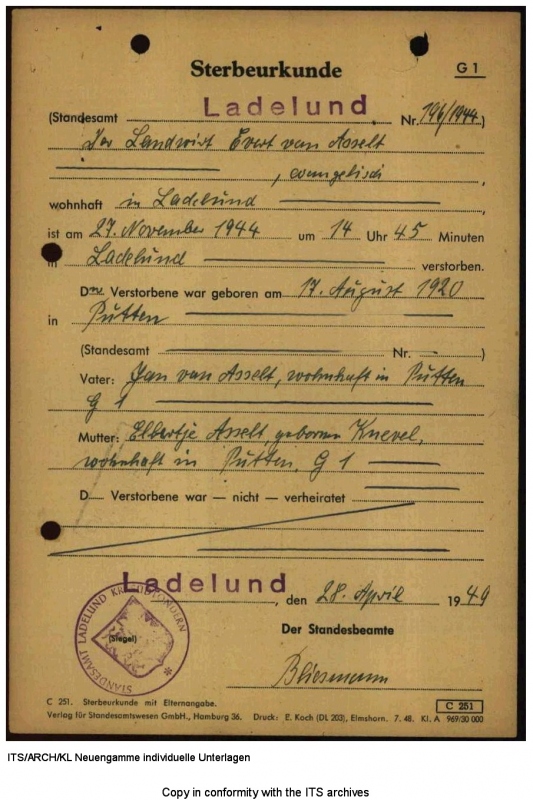 Sterbeurkunde
G 1
(Standesamt Ladelund Nr. 196/1944)
Der Landwirt Evert van Asselt
, evangelisch,
wohnhaft in Ladelund,
ist am 27. November 1944 um 14 Uhr 45 Minuten
in Ladelund verstorben.
Der Verstorbene war geboren am 17. August 1920
in Putten
(Standesamt Nr. — )
Vater: Jan van Asselt, wohnhaft in Putten
G 1
Mutter: Elbertje Asselt, geborene Knevel,
wohnhaft in Putten, G 1
D Verstorbene war — nicht — verheiratet
Ladelund, den 28. April 1949
STANDESAMT LADELUND KREIS SÜDTONDERN
(Siegel)
Der Standesbeamte
C 251. Sterbeurkunde mit Elternangabe.
C 251
Verlag für Standesamtswesen GmbH., Hamburg 36. Druck: E. Koch (DL 203), Elmshorn. 7. 48. Kl. A 969/30 000
ITS/ARCH/KL Neuengamme individuelle Unterlagen
Copy in conformity with the ITS archives